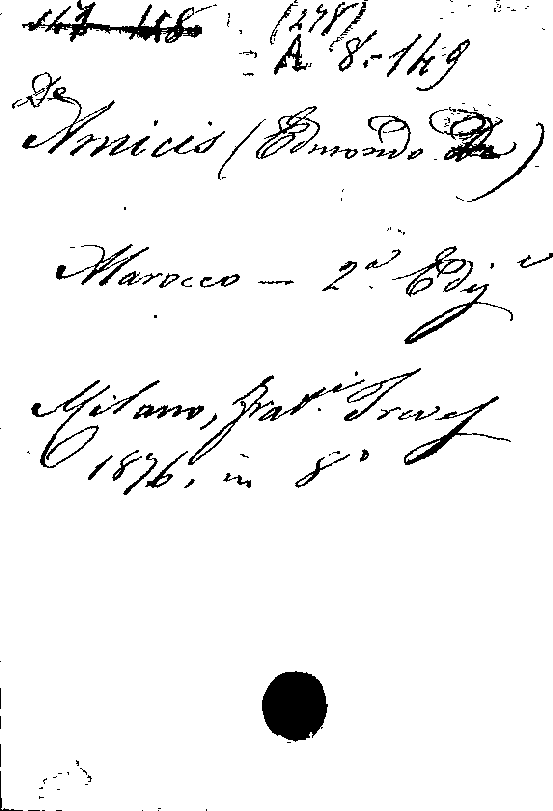 (278)
A 8-149
De
Amicis (Edmondo De)
Marocco — 2.a Ediz.e
Milano, Frat.i Treves
1876, in 8°